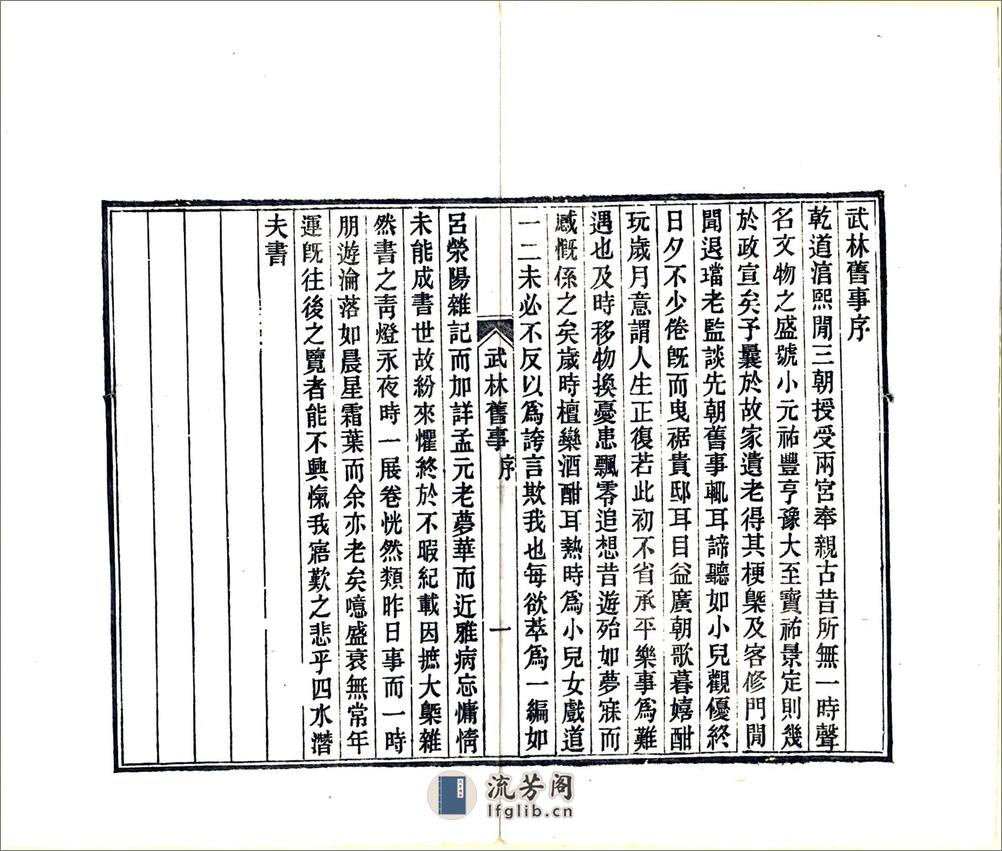 武林舊事序
乾道淳熙閒三朝授受兩宮奉親古昔所無一時聲
名文物之盛號小元祐豐亨豫大至寶祐景定則幾
於政宣矣予曩於故家遺老得其梗槩及客修門閒
聞退璫老監談先朝舊事輒耳諦聽如小兒觀優終
日夕不少倦旣而曳裾貴邸耳目益廣朝歌暮嬉酣
玩歲月意謂人生正復若此初不省承平樂事爲難
遇也及時移物換憂患飄零追想昔遊殆如夢寐而
感慨係之矣歲時檀欒酒酣耳熱時爲小兒女戲道
一二未必不反以爲誇言欺我也每欲萃爲一編如
武林舊事 序 一
呂滎陽雜記而加詳孟元老夢華而近雅病忘慵惰
未能成書世故紛來懼終於不暇紀載因摭大槩雜
然書之靑燈永夜時一展卷恍然類昨日事而一時
朋遊淪落如晨星霜葉而余亦老矣噫盛衰無常年
運旣往後之覽者能不興愾我寤歎之悲乎四水潛
夫書
流芳阁
lfglib.cn